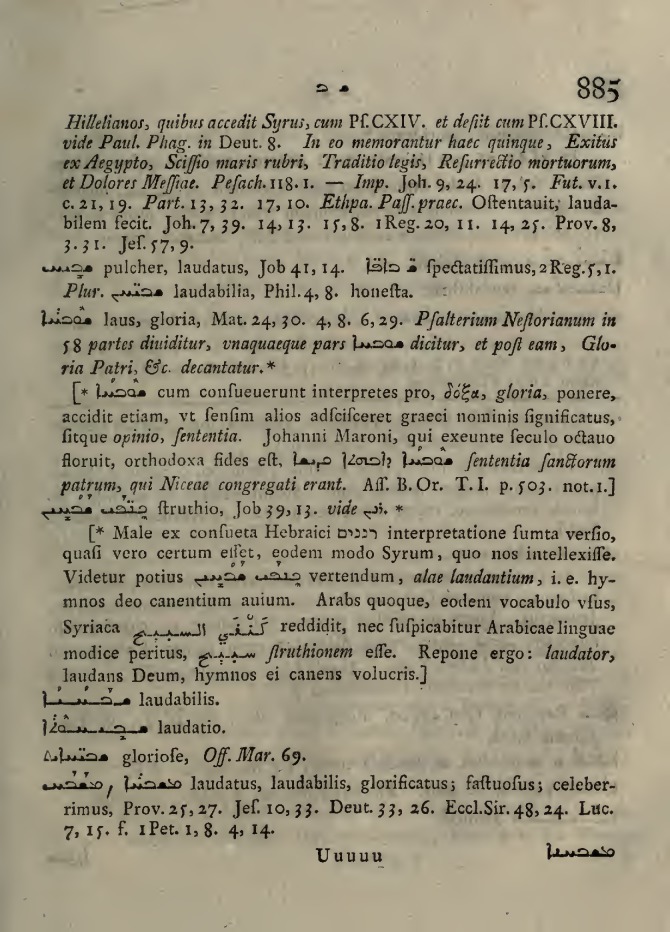 ܫ ܒ 885
Hillelianos, quibus accedit Syrus, cum Pſ.CXIV. et deſiit cum Pſ.CXVIII.
vide Paul. Phag. in Deut. 8. In eo memorantur haec quinque, Exitus
ex Aegypto, Sciſſio maris rubri, Traditio legis, Reſurrectio mortuorum,
et Dolores Meſſiae. Peſach. 118. 1. — Imp. Joh. 9, 24. 17, 5. Fut. v. 1.
c. 21, 19. Part. 13, 32. 17, 10. Ethpa. Paſſ. praec. Oſtentauit, lauda-
bilem fecit. Joh. 7, 39. 14, 13. 15, 8. 1 Reg. 20, 11. 14, 25. Prov. 8,
3. 31. Jeſ. 57, 9.
ܫܒܝܚ pulcher, laudatus, Job 41, 14. ſpectatiſſimus, 2 Reg. 5, 1.
Plur. ܫܒܝܚܢ laudabilia, Phil. 4, 8. honeſta.
ܫܘܒܚܐ laus, gloria, Mat. 24, 30. 4, 8. 6, 29. Pſalterium Neſtorianum in
58 partes diuiditur, vnaquaeque pars ܫܘܒܚܐ dicitur, et poſt eam, Glo-
ria Patri, &c. decantatur. *
[* ܫܘܒܚܐ cum conſueuerunt interpretes pro, δόξα, gloria, ponere,
accidit etiam, vt ſenſim alios adſciſceret graeci nominis ſignificatus,
ſitque opinio, ſententia. Johanni Maroni, qui exeunte ſeculo octauo
floruit, orthodoxa fides eſt, ܫܘܒܚܐ ܕܐܒܗܬܐ ܩܕܝܫܐ ſententia ſanctorum
patrum, qui Niceae congregati erant. Aſſ. B. Or. T. I. p. 503. not. 1.]
ܟܢܦܝ ܫܒܝܚܝܢ ſtruthio, Job 39, 13. vide *
[* Male ex conſueta Hebraici רננים interpretatione ſumta verſio,
quaſi vero certum eſſet, eodem modo Syrum, quo nos intellexiſſe.
Videtur potius ܟܢܦܝ ܫܒܝܚܝܢ vertendum, alae laudantium, i. e. hy-
mnos deo canentium auium. Arabs quoque, eodem vocabulo vſus,
Syriaca كنفي السبيح reddidit, nec ſuſpicabitur Arabicae linguae
modice peritus, سبيح ſtruthionem eſſe. Repone ergo: laudator,
laudans Deum, hymnos ei canens volucris.]
laudabilis.
ܫܒܝܚܘܬܐ laudatio.
ܫܒܝܚܐܝܬ glorioſe, Off. Mar. 69.
ܡܫܒܚ, ܡܫܒܚܐ laudatus, laudabilis, glorificatus; faſtuoſus; celeber-
rimus, Prov. 25, 27. Jeſ. 10, 33. Deut. 33, 26. Eccl. Sir. 48, 24. Luc.
7, 15. f. 1 Pet. 1, 8. 4, 14.
Uuuuu ܡܫܒܚܢܐ